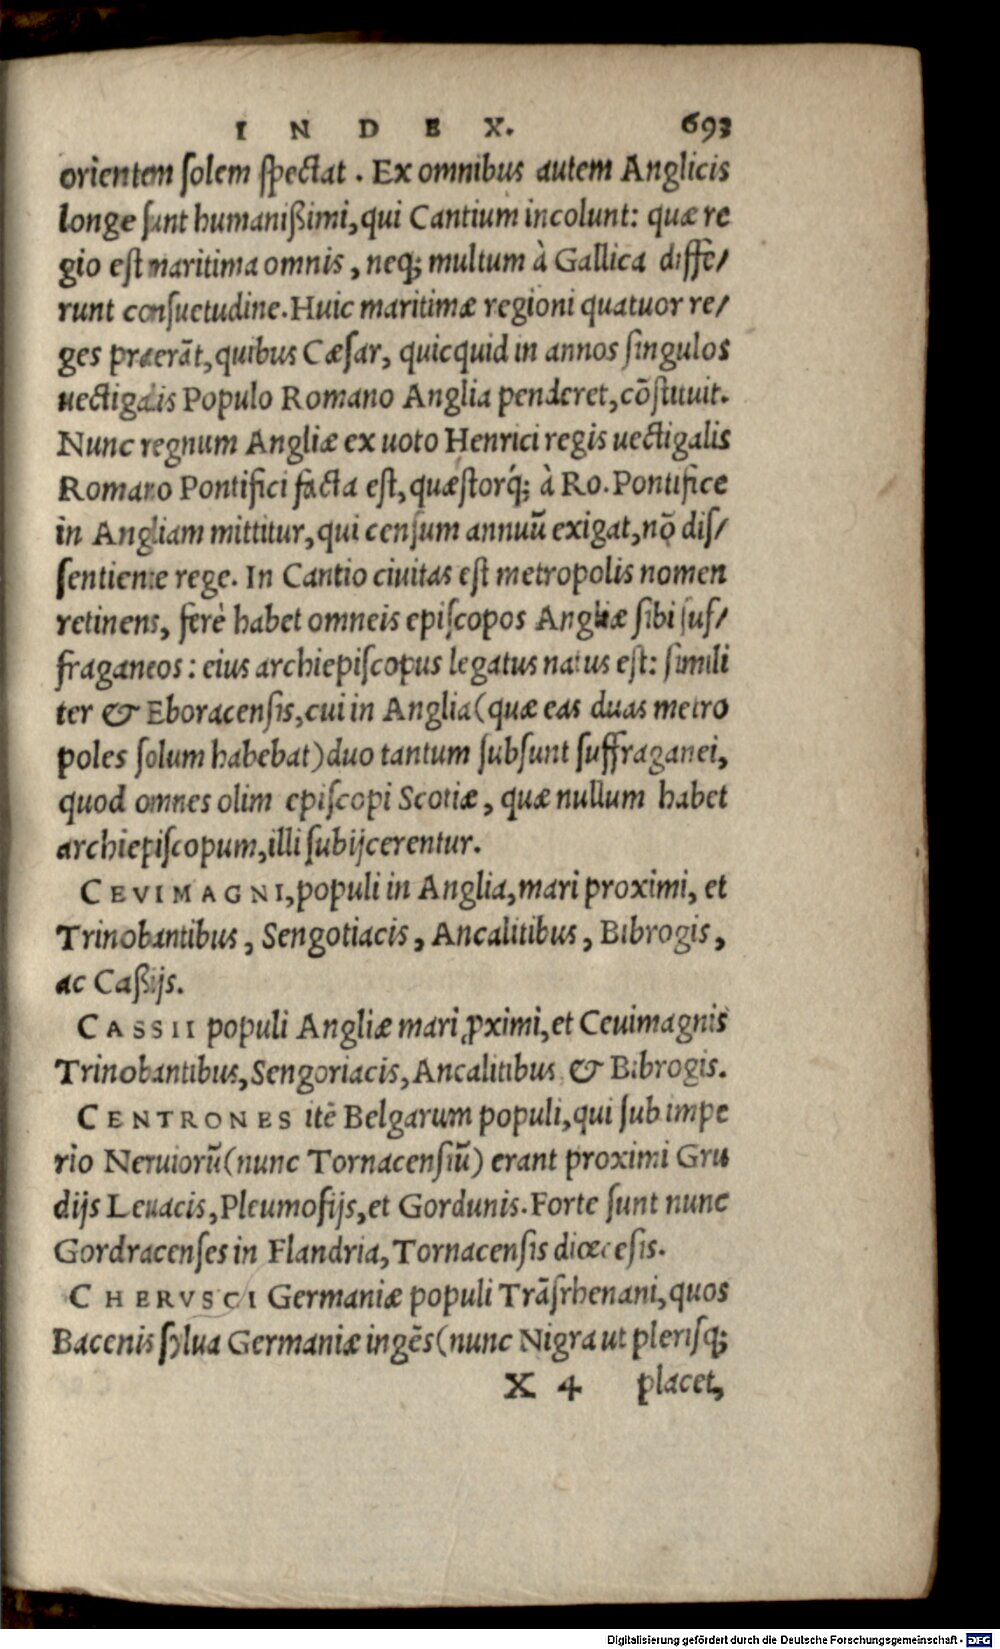 INDEX. 693
orientem solem spectat. Ex omnibus autem Anglicis
longe sunt humanißimi, qui Cantium incolunt: quæ re
gio est maritima omnis, neq; multum à Gallica diffe/
runt consuetudine. Huic maritimæ regioni quatuor re/
ges praerāt, quibus Cæsar, quicquid in annos singulos
uectigalis Populo Romano Anglia penderet, cōstituit.
Nunc regnum Angliæ ex uoto Henrici regis uectigalis
Romano Pontifici facta est, quæstorq́; à Ro. Pontifice
in Angliam mittitur, qui censum annuū exigat, nō dis/
sentiente rege. In Cantio ciuitas est metropolis nomen
retinens, ferè habet omneis episcopos Angliæ sibi suf/
fraganeos: eius archiepiscopus legatus natus est: simili
ter & Eboracensis, cui in Anglia (quæ eas duas metro
poles solum habebat) duo tantum subsunt suffraganei,
quod omnes olim episcopi Scotiæ, quæ nullum habet
archiepiscopum, illi subijcerentur.
CEVIMAGNI, populi in Anglia, mari proximi, et
Trinobantibus, Sengotiacis, Ancalitibus, Bibrogis,
ac Caßijs.
CASSII populi Angliæ mari ꝓximi, et Ceuimagnis
Trinobantibus, Sengoriacis, Ancalitibus & Bibrogis.
CENTRONES itē Belgarum populi, qui sub impe
rio Neruiorū (nunc Tornacensiū) erant proximi Gru
dijs Leuacis, Pleumosijs, et Gordunis. Forte sunt nunc
Gordracenses in Flandria, Tornacensis diœcesis.
CHERVSCI Germaniæ populi Trāsrhenani, quos
Bacenis sylua Germaniæ ingēs (nunc Nigra ut plerisq;
X 4 placet,
Digitalisierung gefördert durch die Deutsche Forschungsgemeinschaft - DFG